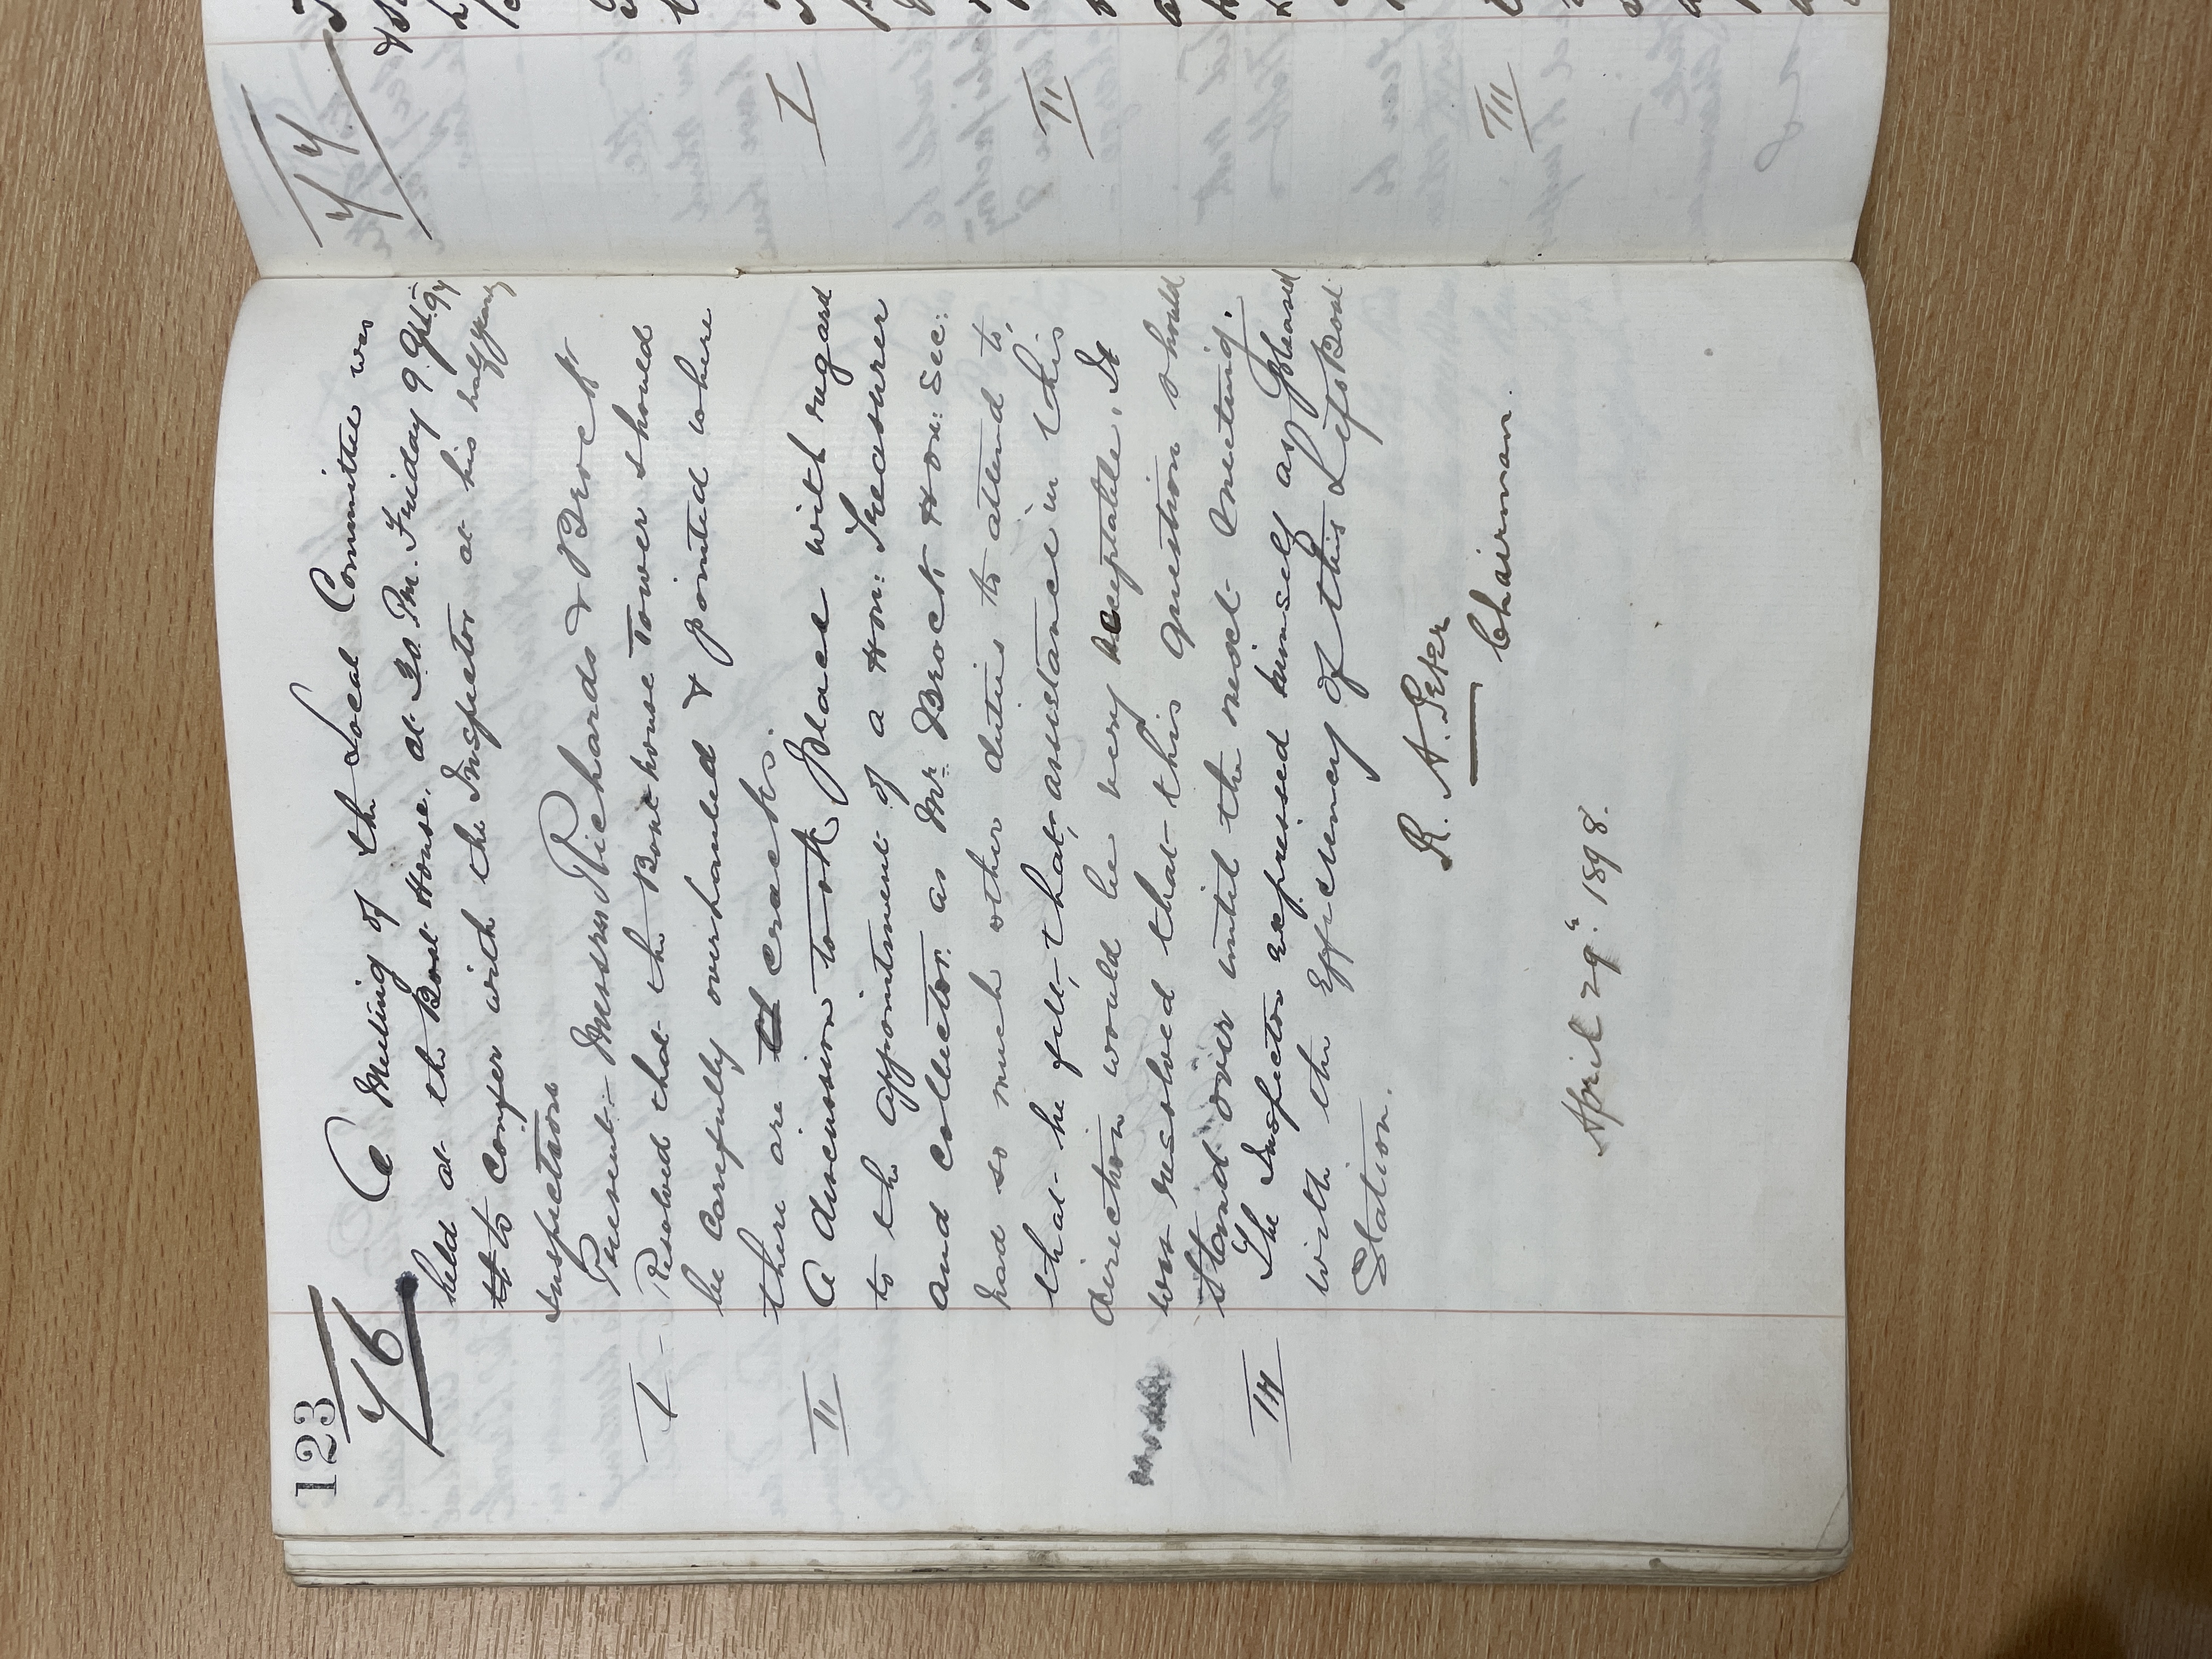 123
76
A Meeting of the Local Committee was
held at the Boat House, at 30. Pm. Friday 9. 97
to confer with the Inspector at his half yearly
inspection
Present- Messrs Richards & Brock
I Resolved that the Boat house Tower should
be carefully overhauled & pointed where
there are cracks.
II A discussion took place with regard
to the appointment of a Hon: Treasurer
and collector as Mr. Brock Hon: Sec:
had so much other duties to attend to,
that he felt, that, assistance in this
direction would be very acceptable. It
was resolved that this question should
stand over until the next meeting.
III The Inspector expressed himself as pleased
with the Efficiency of this Life Boat
Station.
R. A. Peter
Chairman.
April 29th. 1898.
77
I
II
III